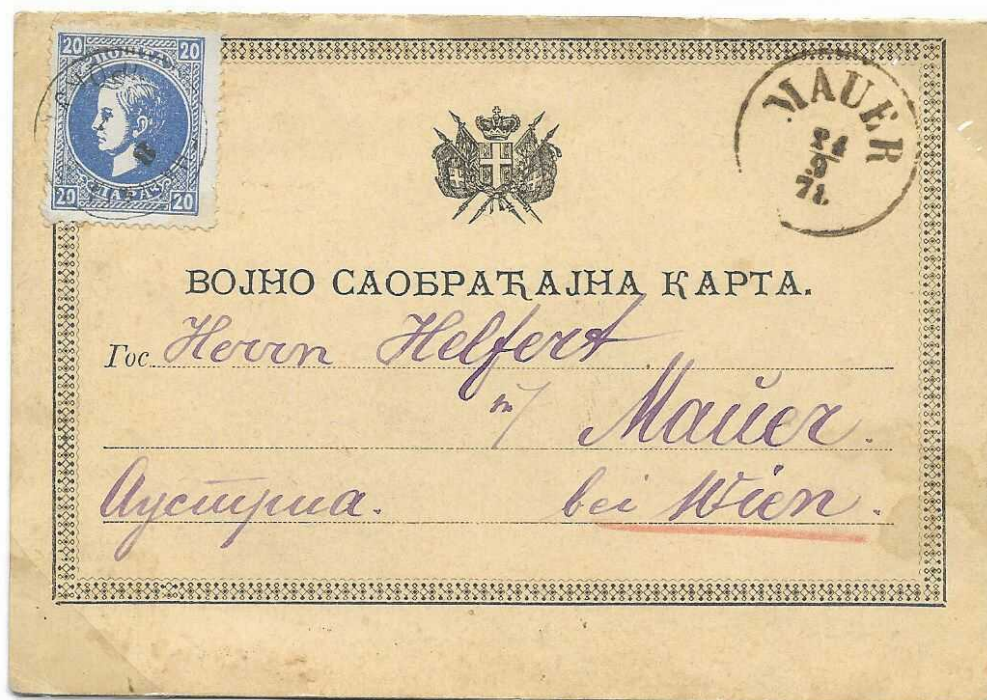 20 20
20 20
MAUER
21
9
78
ВОЈНО САОБРАЋАЈНА КАРТА.
Гос. Herrn Helfert
in Mauer.
Аустриа. bei Wien.